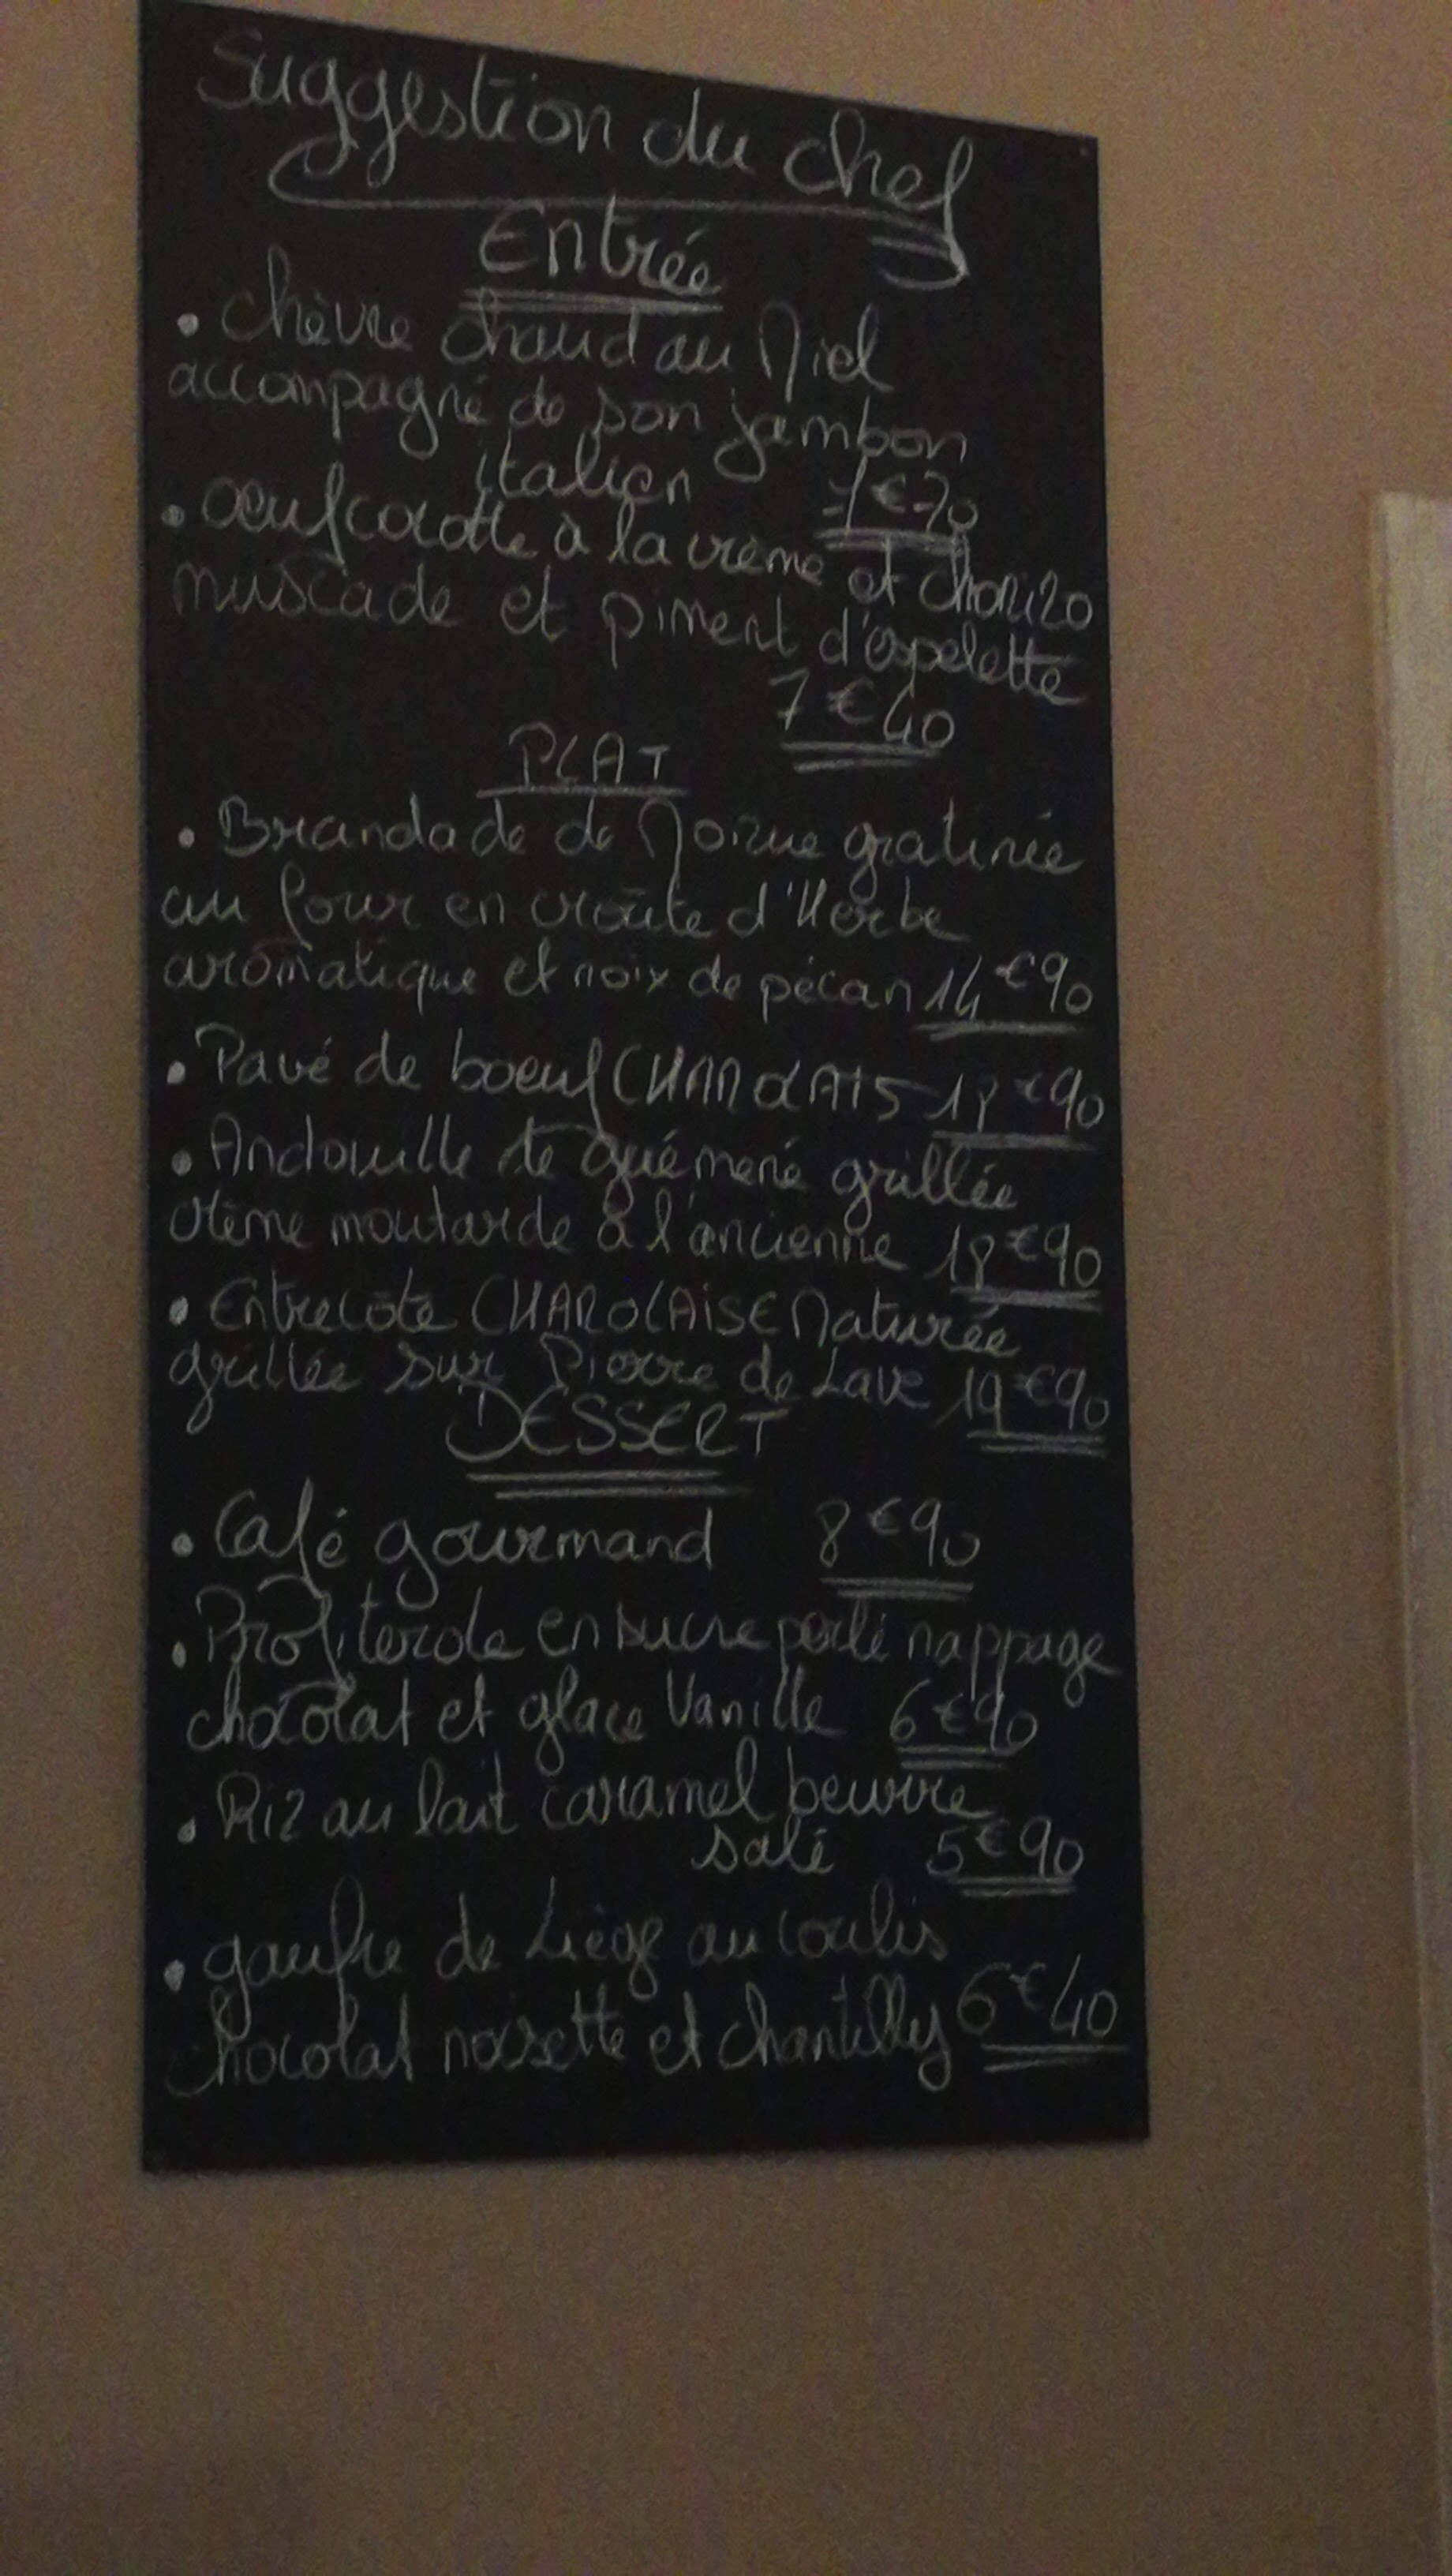 Suggestion du chef
Entrée
• chèvre chaud au Miel
accompagné de son jambon
italien 7€70
• œuf cocotte à la crème et chorizo
muscade et piment d'espelette
7€40
PLAT
• Brandade de Morue gratinée
au four en croûte d'Herbe
aromatique et noix de pécan 14€90
• Pavé de boeuf CHAROLAIS 18€90
• Andouille de guémené grillée
crème moutarde à l'ancienne 18€90
• Entrecôte CHAROLAISE Maturée
grillée sur Pierre de Lave 19€90
DESSERT
• Café gourmand 8€90
• Profiterole en sucre perlé nappage
chocolat et glace Vanille 6€90
• Riz au lait caramel beurre
salé 5€90
• gaufre de Liège au coulis
chocolat noisette et chantilly 6€40